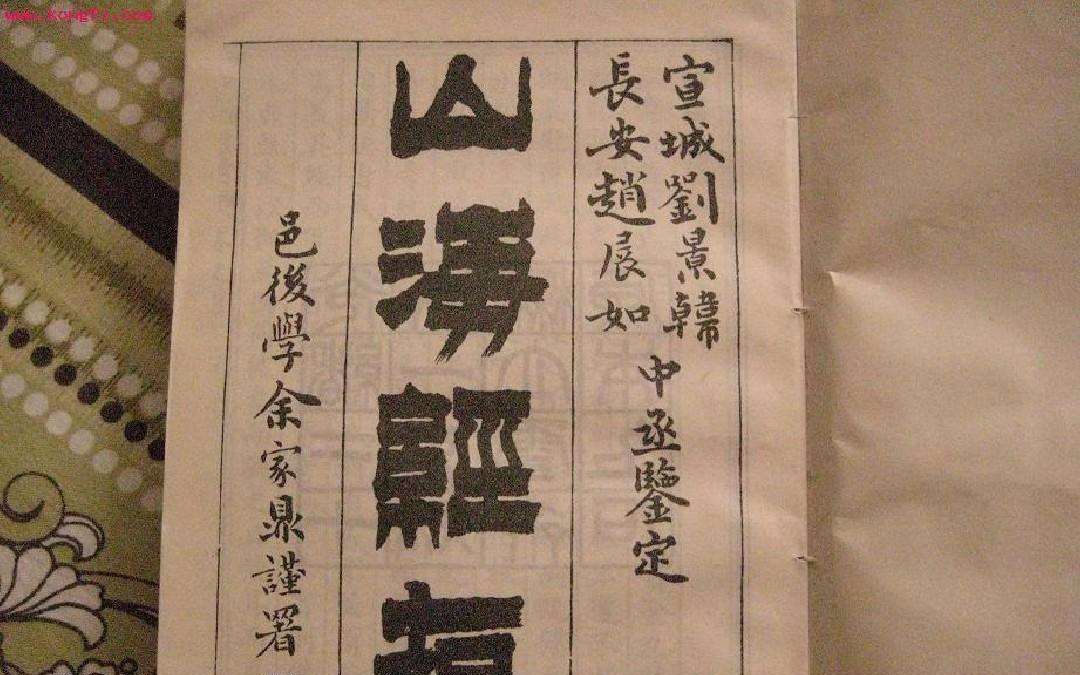 www.kongfz.com
宣城劉景韓
長安趙展如
中丞鑒定
山海經
邑後學余家鼎謹署